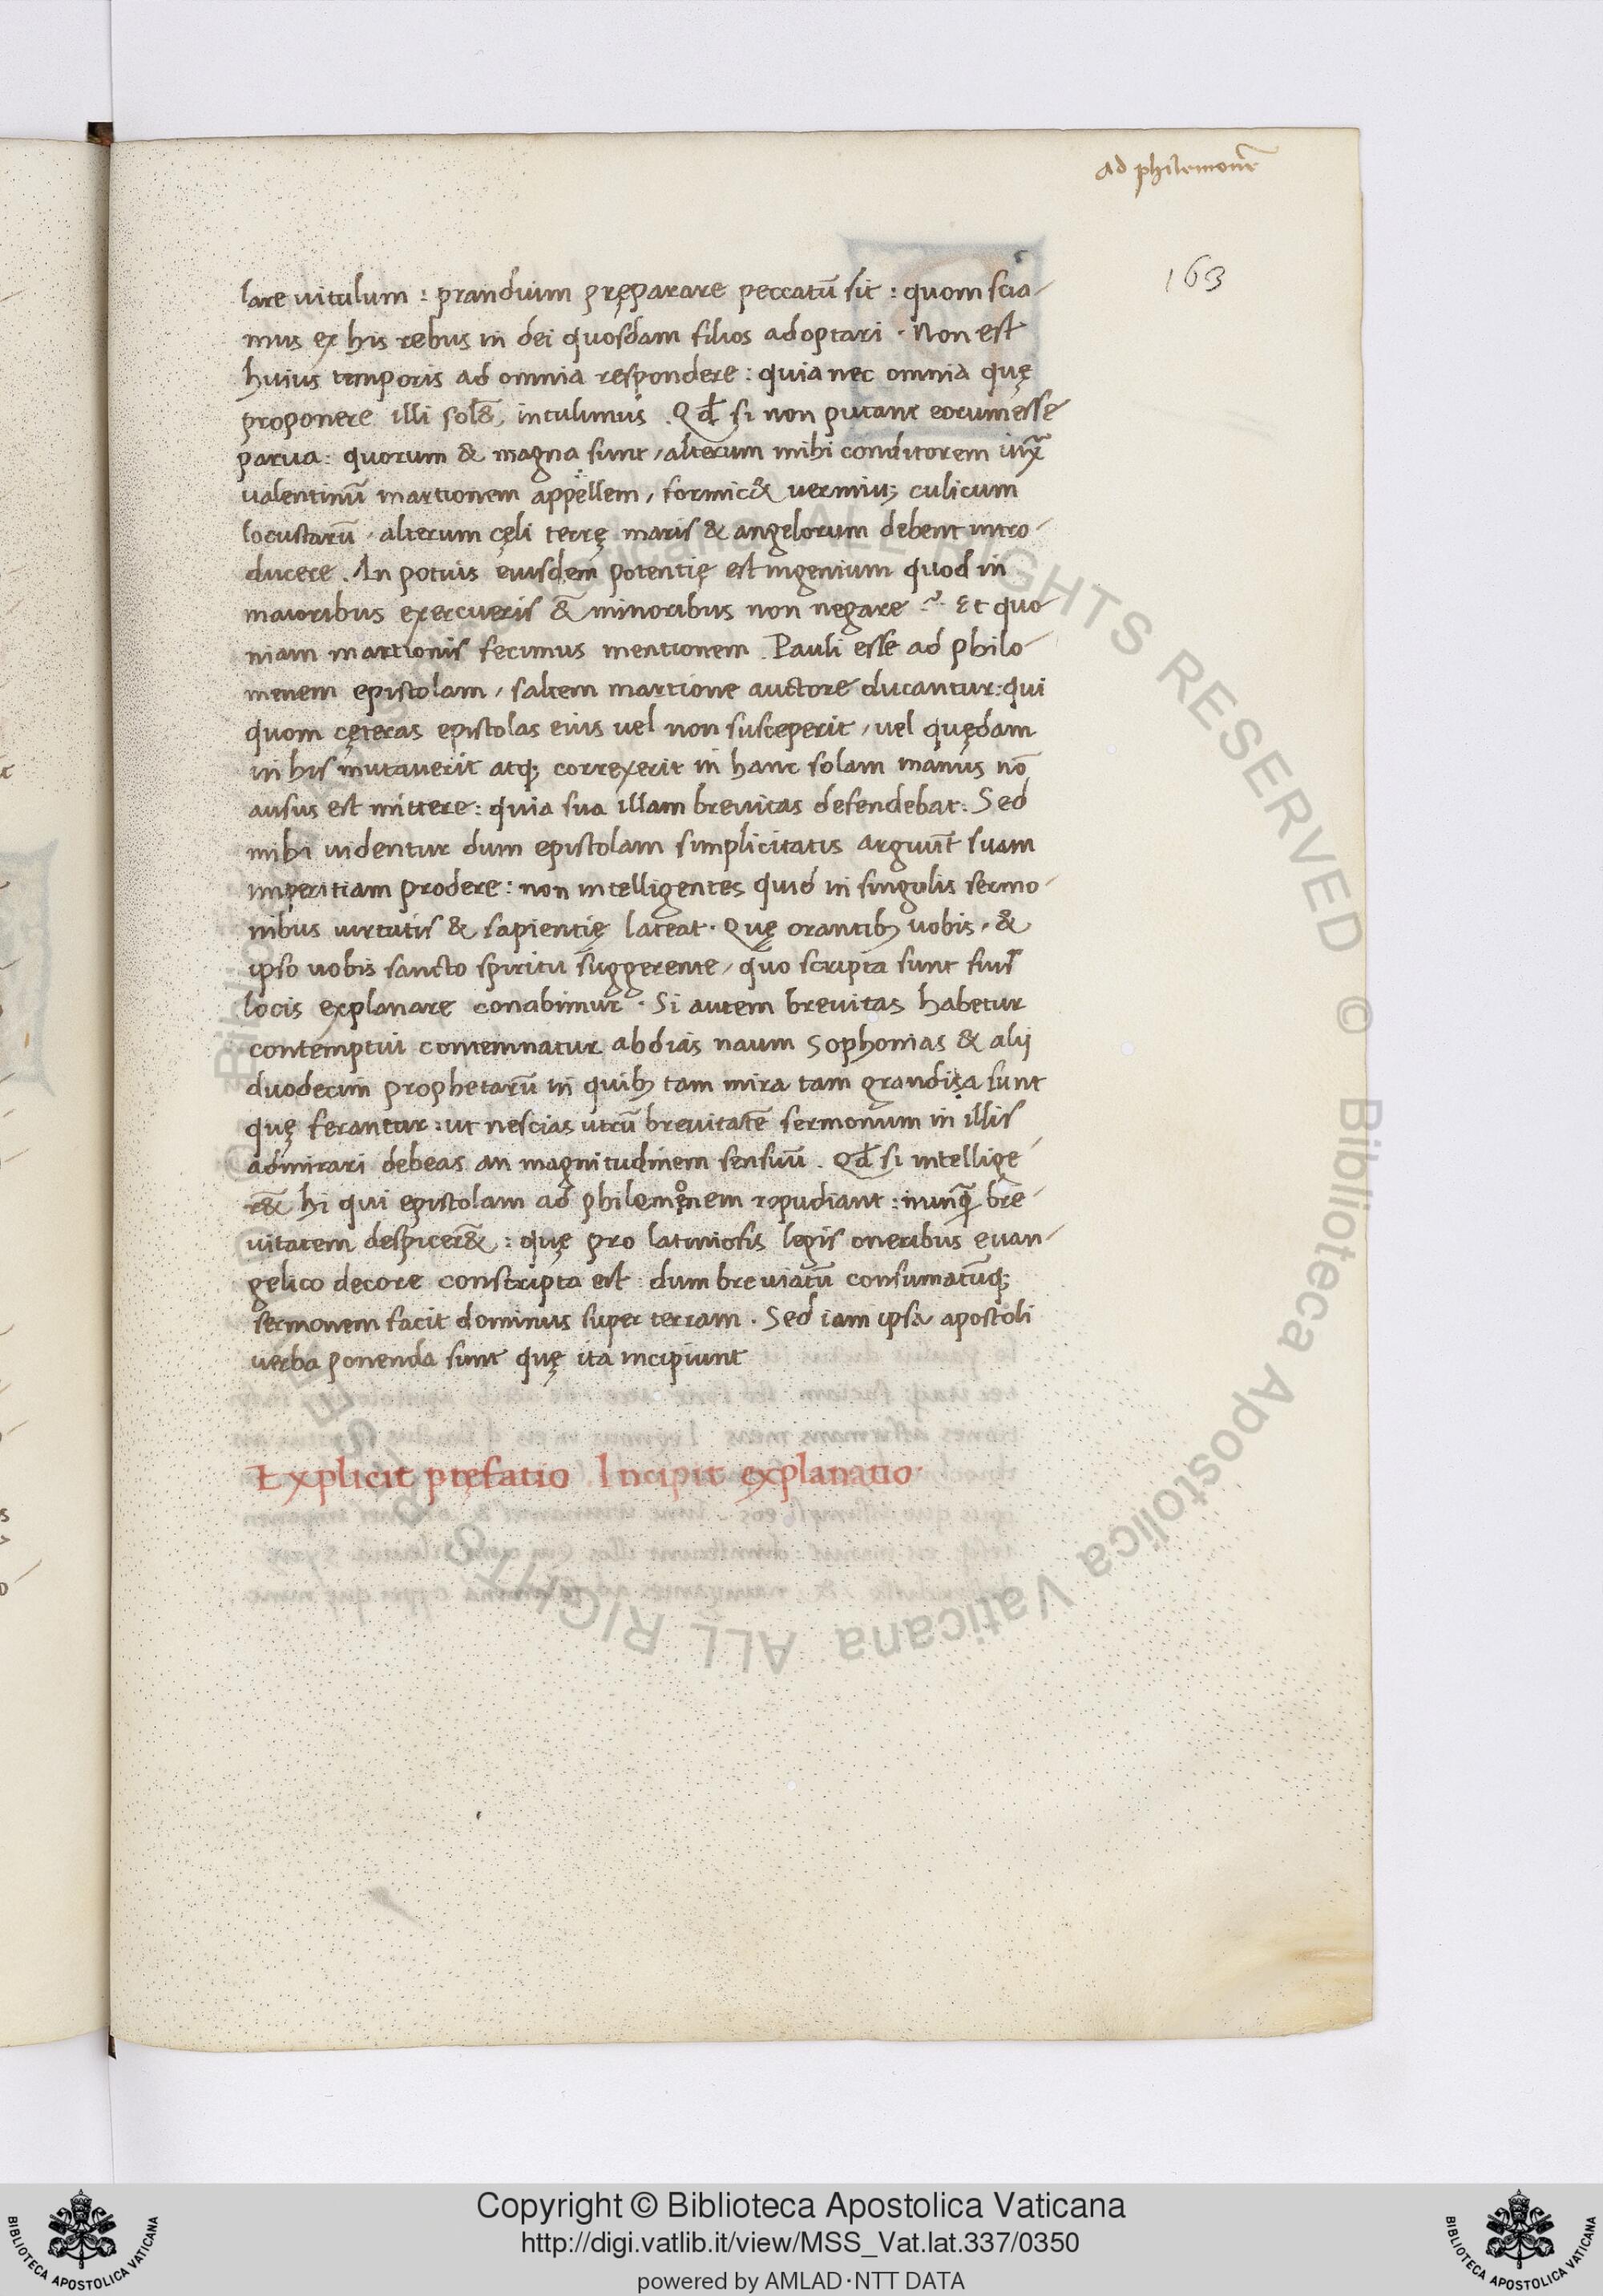 ad philemonē
163
lare uitulum : prandium pręparare peccatū sit : quom scia-
mus ex his rebus in dei quosdam filios adoptari . Non est
huius temporis ad omnia respondere : quia nec omnia quę
proponere illi sol&, intulimus . Qđ si non putant eorum esse
parua : quorum & magna sunt, alterum mihi conditorem iuxͣ
ualentinū martionem appellem, formic& uermiuȝ culicum
locustarū, alterum cęli terrę maris & angelorum debent intro-
ducere . An potius eiusdem potentię est ingenium quod in
maioribus exercueris & minoribus non negare ? Et quo-
niam martionis fecimus mentionem . Pauli esse ad philo-
menem epistolam, saltem martione auctore ducantur : qui
quom cęteras epistolas eius uel non susceperit, uel quędam
in his mutauerit atqȝ correxerit in hanc solam manus nō
ausus est mittere : quia sua illam breuitas defendebat . Sed
mihi uidentur dum epistolam simplicitatis arguūt suam
imperitiam prodere : non intelligentes quid in singulis sermo-
nibus uirtutis & sapientię lateat . Quę orantibȝ uobis, &
ipso uobis sancto spiritu suggerente, quo scripta sunt suis
locis explanare conabimur . Si autem breuitas habetur
contemptui contemnatur abdias naum Sophonias & alij
duodecim prophetarū in quibȝ tam mira tam grandisa sunt
quę ferantur : ut nescias utrū breuitatē sermonum in illis
admirari debeas an magnitudinem sensuū . Qđ si intellige-
r& hi qui epistolam ad philemonem repudiant : nunqͣ bre-
uitatem despicer& : quę pro latiniosis legis oneribus euan-
gelico decore conscripta est : dum breuiatū consumatūqȝ
sermonem facit dominus super terram . Sed iam ipsa apostoli
uerba ponenda sunt quę ita incipiunt
Explicit pręfatio Incipit explanatio .
© Biblioteca Apostolica Vaticana ALL RIGHTS RESERVED
Copyright © Biblioteca Apostolica Vaticana
http://digi.vatlib.it/view/MSS_Vat.lat.337/0350
powered by AMLAD·NTT DATA
BIBLIOTECA APOSTOLICA VATICANA
BIBLIOTECA APOSTOLICA VATICANA